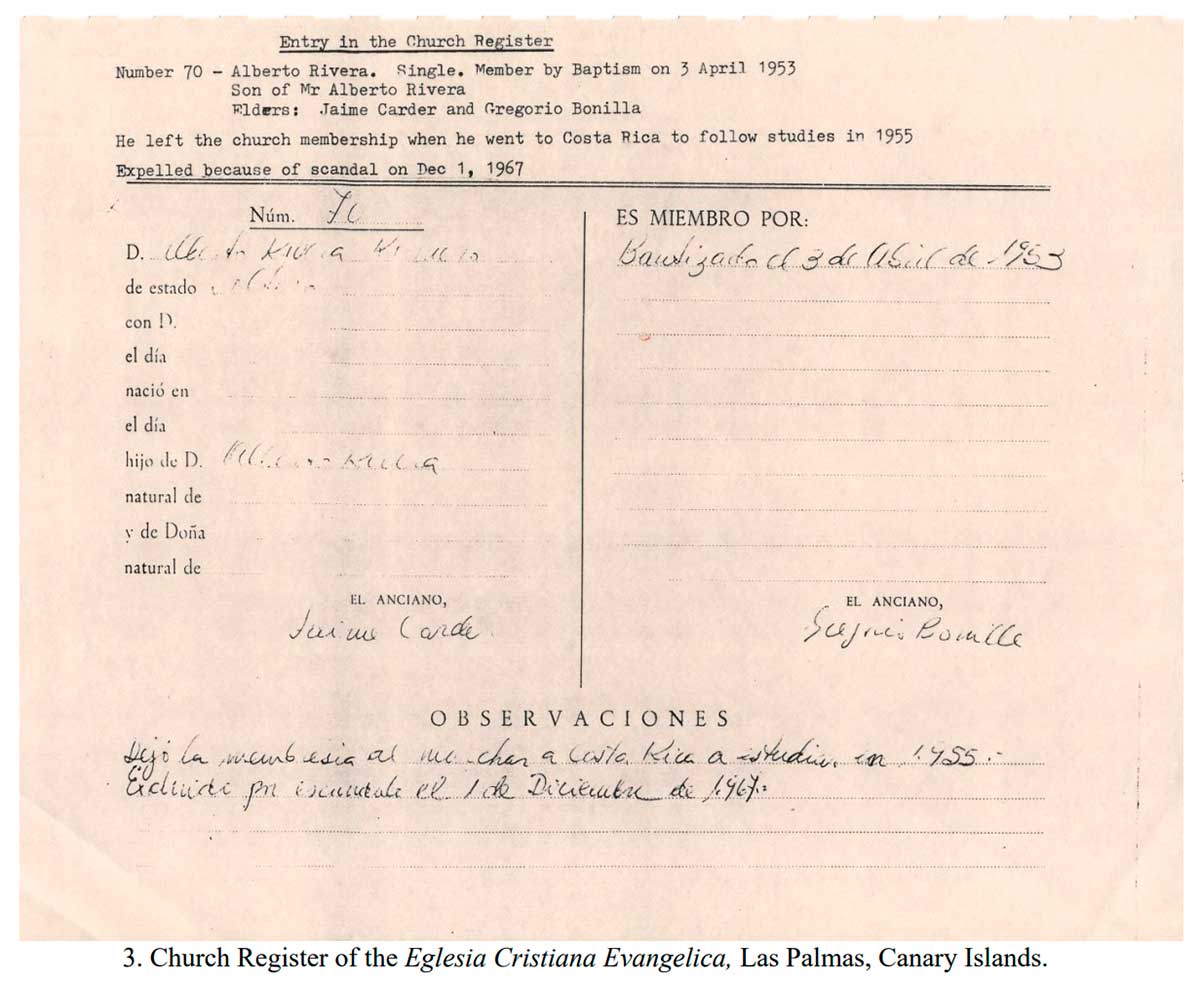 Entry in the Church Register
Number 70 - Alberto Rivera. Single. Member by Baptism on 3 April 1953
Son of Mr Alberto Rivera
Elders: Jaime Carder and Gregorio Bonilla
He left the church membership when he went to Costa Rica to follow studies in 1955
Expelled because of scandal on Dec 1, 1967
Núm. 70
D. Alberto Rivera
de estado
con D.
el día
nació en
el día
hijo de D. Alberto Rivera
natural de
y de Doña
natural de
EL ANCIANO,
Jaime Carder
ES MIEMBRO POR:
Bautizado el 3 de Abril de 1953
EL ANCIANO,
Gregorio Bonilla
OBSERVACIONES
Dejó la membresia al marchar a Costa Rica a estudiar en 1955.-
Excluido por escandalo el 1 de Diciembre de 1967.-
3. Church Register of the Eglesia Cristiana Evangelica, Las Palmas, Canary Islands.